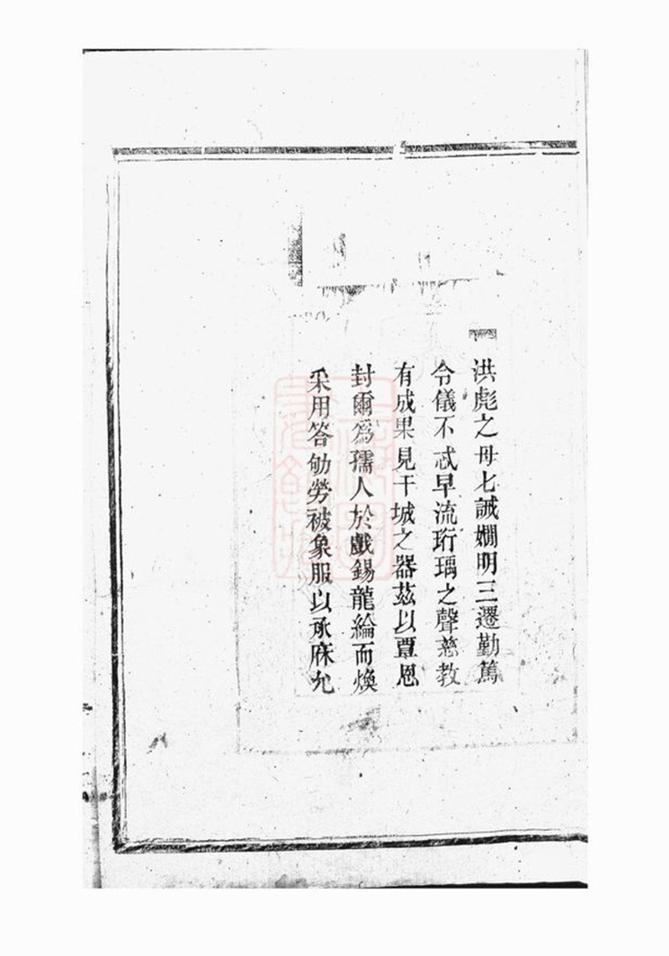 洪彪之母七誡嫻明三遷勤篤
令儀不忒早流珩瑀之聲慈教
有成果見干城之器茲以覃恩
封爾爲孺人於戲錫龍綸而煥
采用答劬勞被象服以承庥允